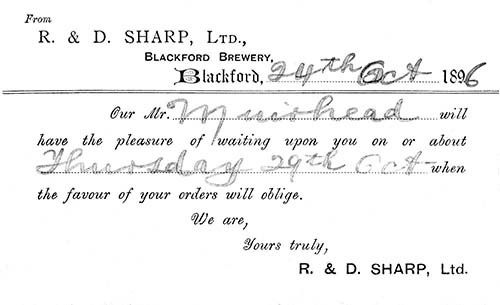 From
R. & D. SHARP, LTD.,
BLACKFORD BREWERY,
Blackford, 24th Oct 1896
Our Mr. Muirhead will
have the pleasure of waiting upon you on or about
Thursday 29th Oct when
the favour of your orders will oblige.
We are,
Yours truly,
R. & D. SHARP, Ltd.